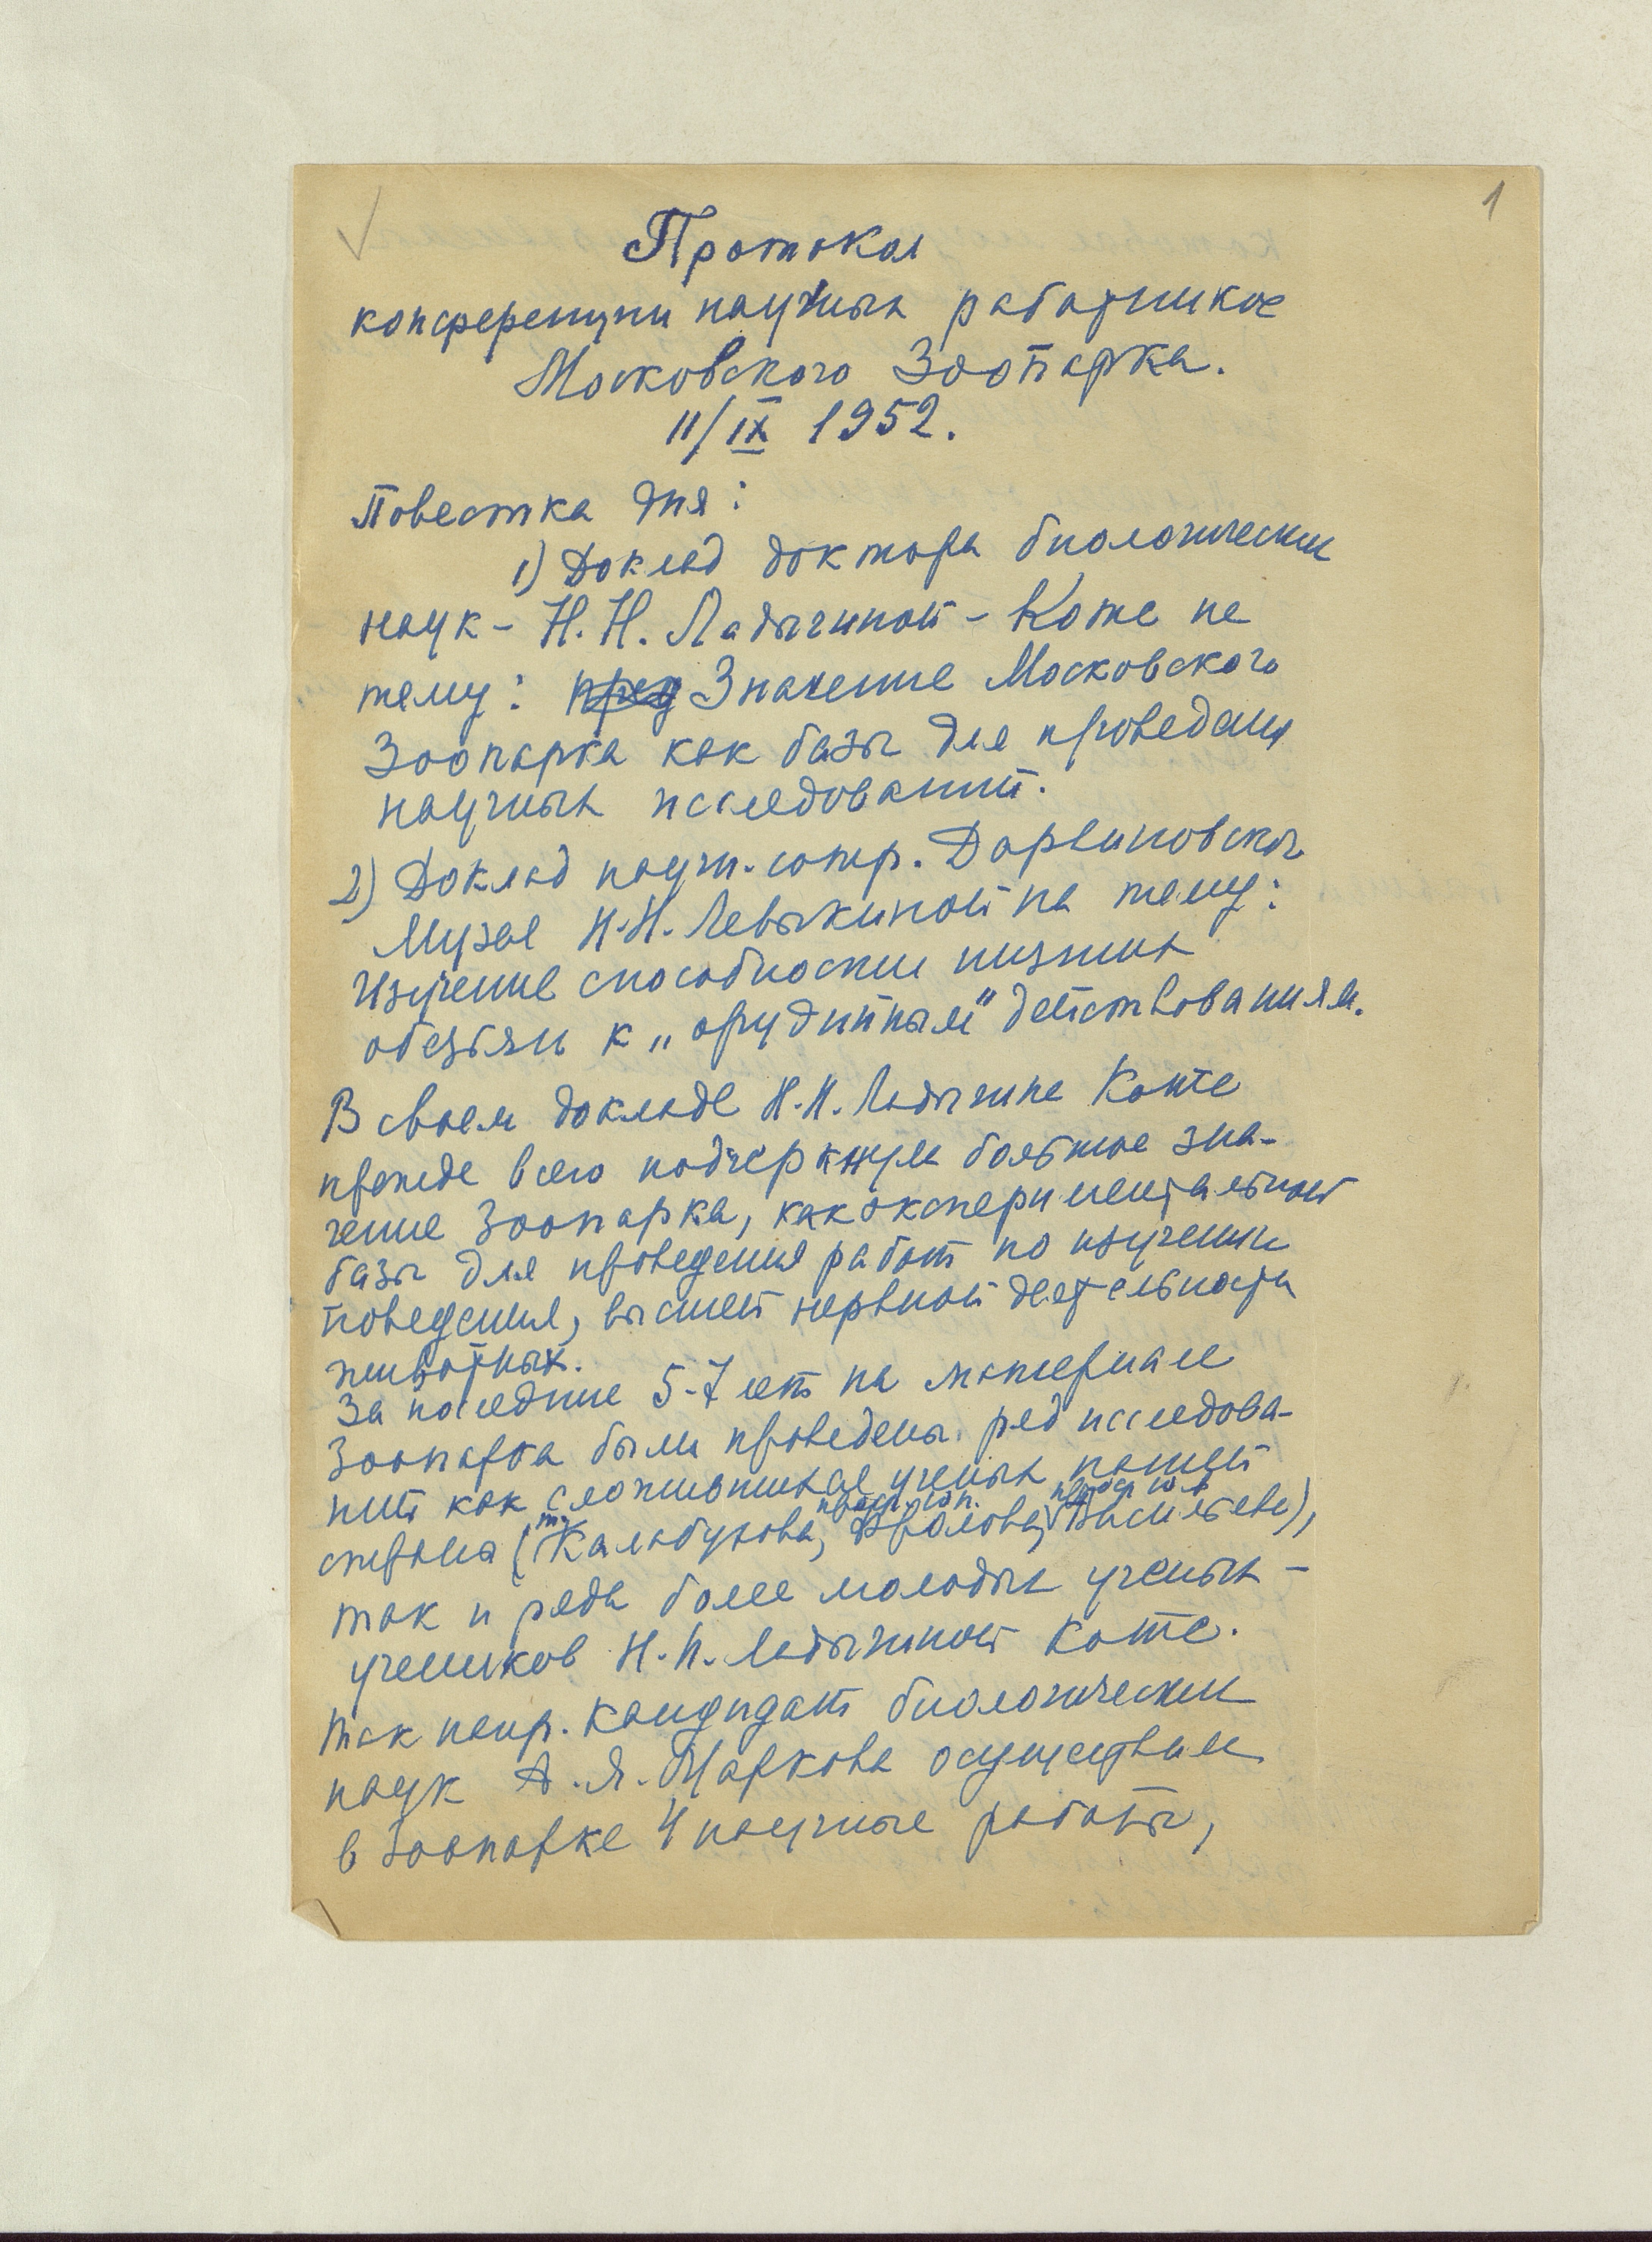 1
Протокол
конференции научных работников
Московского Зоопарка.
11/IX 1952.
Повестка дня:
1) Доклад доктора биологических
наук - Н. Н. Ладыгиной - Котс на
тему: Значение Московского
Зоопарка как базы для проведения
научных исследований.
2) Доклад научн. сотр. Дарвиновского
Музея Н.Н. Левыкиной на тему:
Изучение способности низших
обезьян к „орудийным" действованиям.
В своем докладе Н.Н. Ладыгина Котс
прежде всего подчеркнула большое зна-
чение Зоопарка, как экспериментальной
базы для проведения работ по изучению
поведения, высшей нервной деятельности
животных.
За последние 5-7 лет на материале
Зоопарка были проведены ряд исследова-
ний как сложившихся ученых нашей
страны (Калабухова, Фролова, Васильева),
так и ряда более молодых ученых -
учеников Н.Н. Ладыгиной Котс.
Так напр. кандидат биологических
наук А.Я. Маркова осуществила
в Зоопарке 4 научные работы,